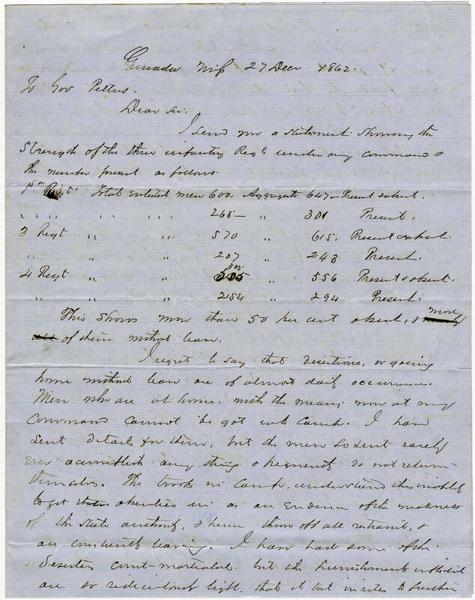 Grenada Miss 27 Decr 1862.
To Gov Pettus.
Dear Sir.
I send you a statement showing the
Strength of the three infantry Regts under my command &
the number present as follows
1st Regt. Total Enlisted men 600. Aggregate 647 - Present & absent.
" " " " 265 - " 301 Present.
3 Regt " " 570 " 615. Present & absent.
" " " 207 " 243 Present.
4 Regt " " 505 " 556 Present & absent.
" " " 254 " 294 Present.
This shows more than 50 per cent absent, & most
of them without leave.
I regret to say that desertions, or going
home without leave are of almost daily occurrence.
Men who are at home, with the means now at my
command cannot be got into Camp. I have
sent details for them, but the men so sent rarely
ever accomplish any thing & frequently do not return
themselves. The troops in Camp, understand this inability
to get absentees in as an evidence of the weakness
of the State authority, & hence throw off all restraint, &
are constantly leaving. I have had some of the
Deserters court-martialed but the punishment inflicted
are so rediculously light, that it but invites to further